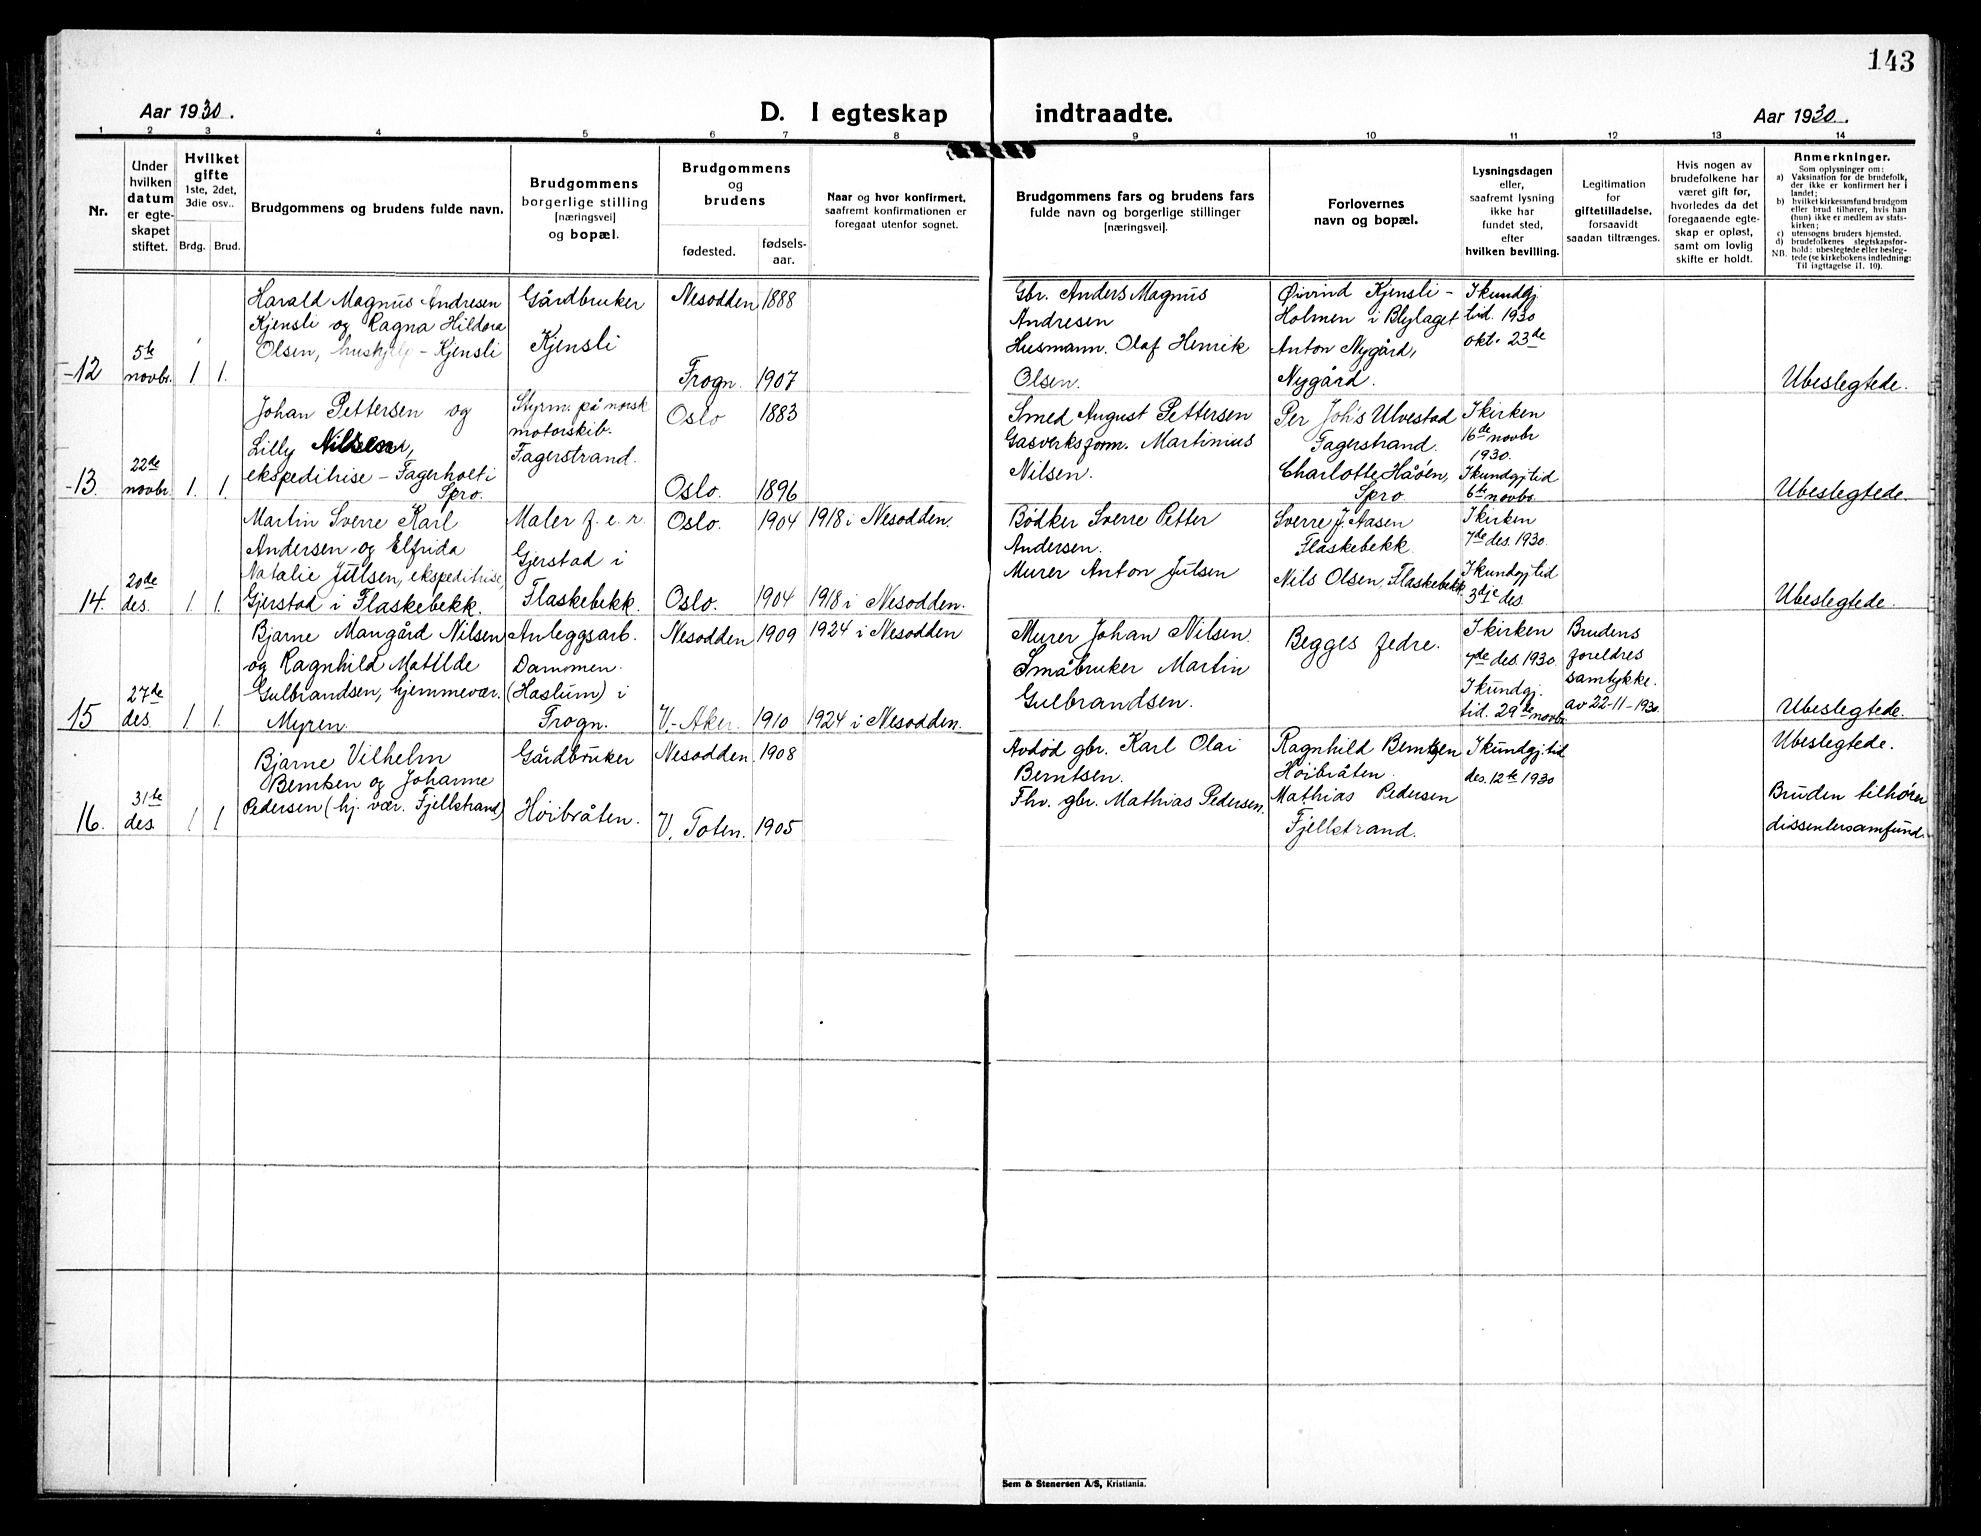 143
Aar 1930.
D. I egteskap indtraadte.
Aar 1930.
1 2 3 4 5 6 7 8 9 10 11 12 13 14
Nr.
Under
hvilken
datum
er egte-
skapet
stiftet.
Hvilket
gifte
1ste, 2det,
3die osv..
Brdg. Brud.
Brudgommens og brudens fulde navn.
Brudgommens
borgerlige stilling
[næringsvei]
og bopæl.
Brudgommens
og
brudens
fødested.
fødsels-
aar.
Naar og hvor konfirmert,
saafremt konfirmationen er
foregaat utenfor sognet.
Brudgommens fars og brudens fars
fulde navn og borgerlige stillinger
[næringsvei].
Forlovernes
navn og bopæl.
Lysningsdagen
eller,
saafremt lysning
ikke har
fundet sted,
efter
hvilken bevilling.
Legitimation
for
giftetilladelse,
forsaavidt
saadan tiltrænges.
Hvis nogen av
brudefolkene har
været gift før,
hvorledes da det
foregaaende egte-
skap er opløst,
samt om lovlig
skifte er holdt.
Anmerkninger.
Som oplysninger om:
a) Vaksination for de brudefolk,
der ikke er konfirmert her i
landet;
b) hvilket kirkesamfund brudgom
eller brud tilhører, hvis han
(hun) ikke er medlem av stats-
kirken;
c) utensogns bruders hjemsted.
d) brudefolkenes slegtskapsfor-
hold: ubeslegtede eller besleg-
NB. tede (se kirkebokens indledning:
Til iagttagelse II. 10).
12
5te
novbr.
1 1.
Harald Magnus Andresen
Kjensli og Ragna Hildora
Olsen, hushjelp - Kjensli
Gårdbruker
Kjensli
Nesodden 1888
Frogn. 1907
Gbr. Anders Magnus
Andresen
Husmann. Olaf Henrik
Olsen.
Øivind Kjensli -
Holmen i Blylaget
Anton Nygård,
Nygård.
I kundgj.
tid. 1930
okt. 23de
Ubeslegtede.
13.
22de
novbr.
1. 1.
Johan Pettersen og
Lilly Nilsen,
ekspeditrise - Fagerholt i
Spro.
Styrm. på norsk
motorskib.
Fagerstrand.
Oslo 1883
Oslo. 1896
Smed August Pettersen
Gasverksform. Martinius
Nilsen.
Per Johs Ulvestad
Fagerstrand.
Charlotte Håøen,
Spro.
I kirken
16de novbr
1930.
I kundgj tid
6te novbr.
Ubeslegtede.
14.
20de
des.
1. 1.
Martin Sverre Karl
Andersen og Elfrida
Natalie Julsen, ekspeditrise,
Gjerstad i Flaskebekk.
Maler f. e. r.
Gjerstad i
Flaskebekk.
Oslo. 1904 1918 i Nesodden.
Oslo. 1904 1918 i Nesodden.
Bødker Sverre Petter
Andersen.
Murer Anton Julsen
Sverre J. Aasen
Flaskebekk
Nils Olsen, Flaskebekk.
I kirken
7de des. 1930.
I kundgj tid
3dje des.
Ubeslegtede.
15
27de
des.
1 1.
Bjarne Mangård Nilsen
og Ragnhild Matilde
Gulbrandsen, hjemmevær.
Myren.
Anleggsarb.
Dammen.
(Haslum) i
Frogn.
Nesodden 1909 1924 i Nesodden
V. Aker. 1910 1924 i Nesodden.
Murer Johan Nilsen.
Småbruker Martin
Gulbrandsen.
Begges fedre.
I kirken
7de des. 1930.
I kundgj.
tid. 29de novbr
Brudens
foreldres
samtykke.
av 22-11-1930.
Ubeslegtede.
16.
31te
des.
1 1
Bjarne Vilhelm
Berntsen og Johanne
Pedersen (hj. vær. Fjellstrand)
Gårdbruker
Høibråten.
Nesodden. 1908
V. Toten. 1905
Avdød gbr. Karl Olai
Berntsen.
Fhv. gbr. Mathias Pedersen.
Ragnhild Berntsen
Høibråten.
Mathias Pedersen
Fjellstrand.
I kundgj. tid
des. 12te 1930
Ubeslegtede.
Bruden tilhører
dissentersamfund.
Sem & Stenersen A/S, Kristiania.